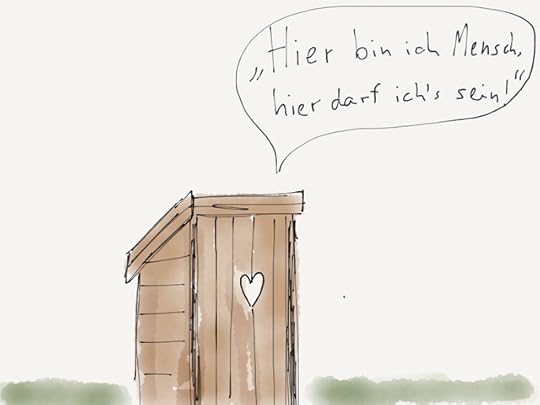 „Hier bin ich Mensch,
hier darf ich's sein!“